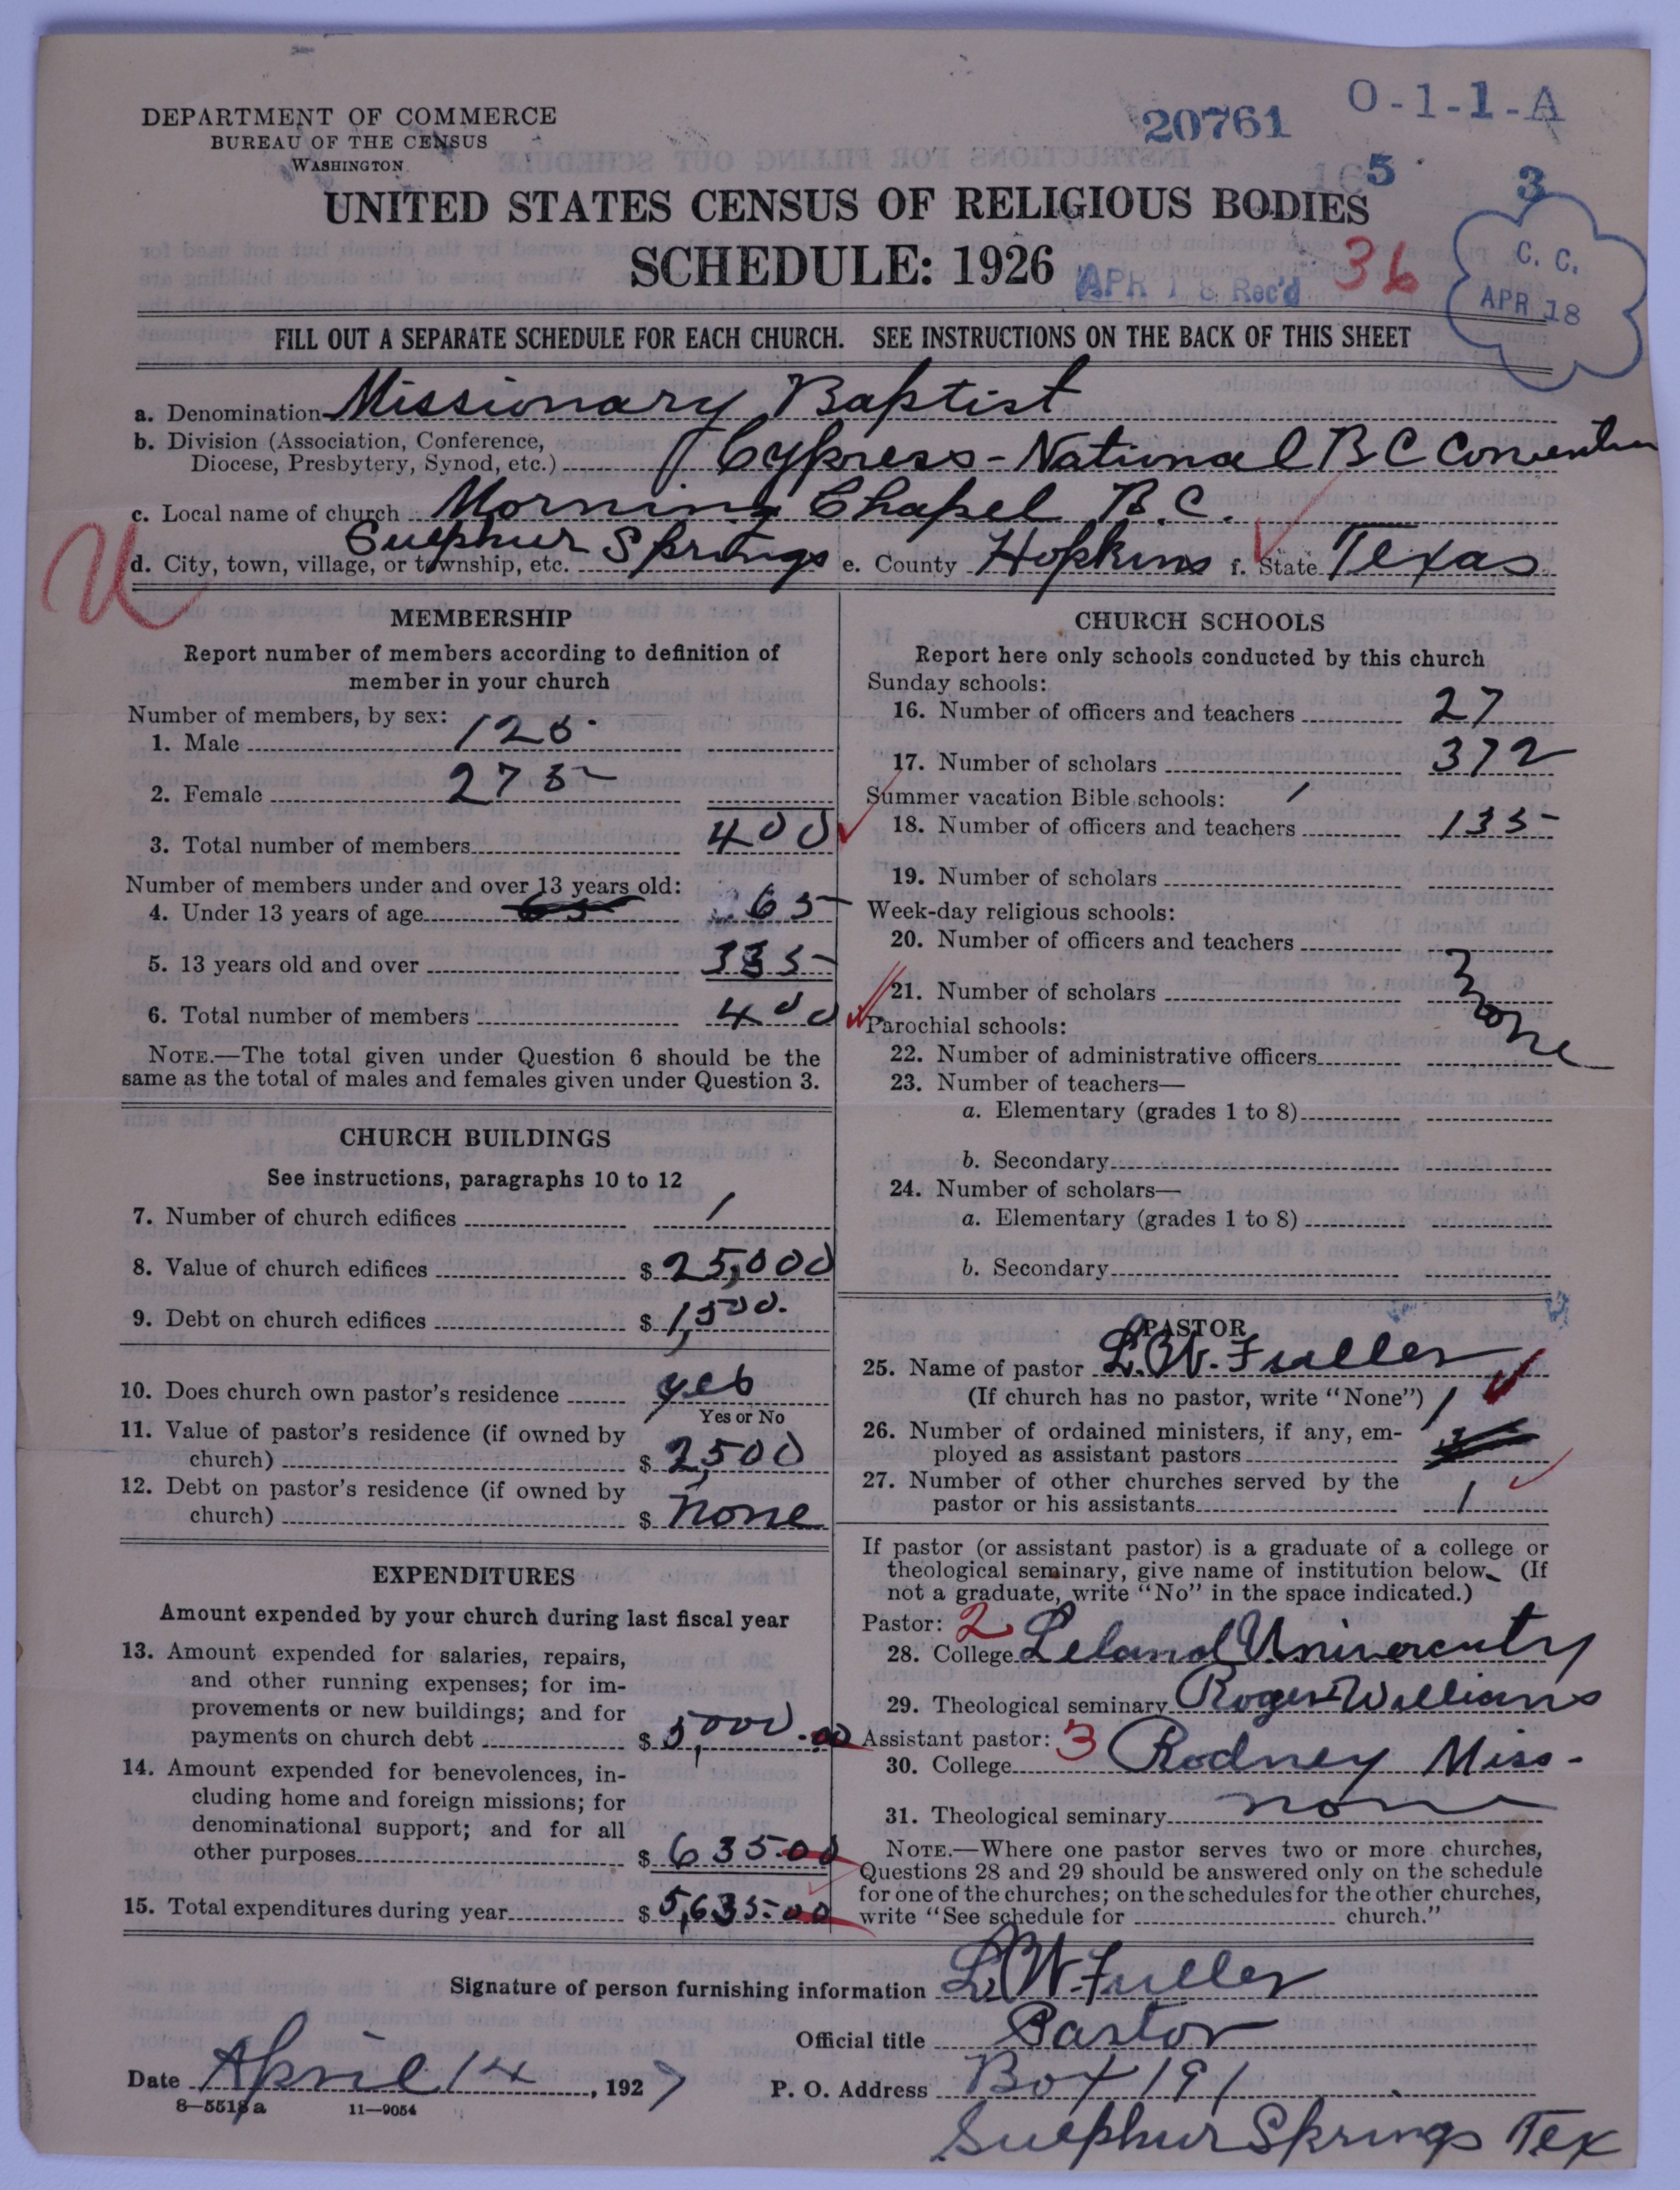 DEPARTMENT OF COMMERCE
BUREAU OF THE CENSUS
WASHINGTON
20761
O-1-1-A
5
3
UNITED STATES CENSUS OF RELIGIOUS BODIES
SCHEDULE: 1926
APR 18 Rec'd
36
C. C.
APR 18
FILL OUT A SEPARATE SCHEDULE FOR EACH CHURCH. SEE INSTRUCTIONS ON THE BACK OF THIS SHEET
a. Denomination Missionary Baptist
b. Division (Association, Conference,
Diocese, Presbytery, Synod, etc.) Cypress-National B C Convention
c. Local name of church Morning Chapel B.C.
d. City, town, village, or township, etc. Sulphur Springs e. County Hopkins f. State Texas
MEMBERSHIP
Report number of members according to definition of
member in your church
Number of members, by sex:
1. Male 125
2. Female 275
3. Total number of members 400
Number of members under and over 13 years old:
4. Under 13 years of age 65
5. 13 years old and over 335
6. Total number of members 400
NOTE.—The total given under Question 6 should be the
same as the total of males and females given under Question 3.
CHURCH BUILDINGS
See instructions, paragraphs 10 to 12
7. Number of church edifices 1
8. Value of church edifices $ 25,000
9. Debt on church edifices $ 1,500.
10. Does church own pastor's residence yes
Yes or No
11. Value of pastor's residence (if owned by
church) $ 2,500
12. Debt on pastor's residence (if owned by
church) $ none
EXPENDITURES
Amount expended by your church during last fiscal year
13. Amount expended for salaries, repairs,
and other running expenses; for im-
provements or new buildings; and for
payments on church debt $ 5,000.00
14. Amount expended for benevolences, in-
cluding home and foreign missions; for
denominational support; and for all
other purposes $ 635.00
15. Total expenditures during year $ 5,635.00
CHURCH SCHOOLS
Report here only schools conducted by this church
Sunday schools:
16. Number of officers and teachers 27
17. Number of scholars 372
Summer vacation Bible schools: 1
18. Number of officers and teachers 135
19. Number of scholars
Week-day religious schools:
20. Number of officers and teachers
21. Number of scholars
none
Parochial schools:
22. Number of administrative officers
23. Number of teachers—
a. Elementary (grades 1 to 8)
b. Secondary
24. Number of scholars—
a. Elementary (grades 1 to 8)
b. Secondary
PASTOR
25. Name of pastor L. W. Fuller
(If church has no pastor, write "None") 1
26. Number of ordained ministers, if any, em-
ployed as assistant pastors
27. Number of other churches served by the
pastor or his assistants 1
If pastor (or assistant pastor) is a graduate of a college or
theological seminary, give name of institution below. (If
not a graduate, write "No" in the space indicated.)
Pastor: 2
28. College Leland Univercity
29. Theological seminary Roger Williams
Assistant pastor: 3
30. College Rodney Miss-
31. Theological seminary none
NOTE.—Where one pastor serves two or more churches,
Questions 28 and 29 should be answered only on the schedule
for one of the churches; on the schedules for the other churches,
write "See schedule for church."
Signature of person furnishing information L. W. Fuller
Official title Pastor
Date April 14, 1927 P. O. Address Box 191
8-5518a 11-9054
Sulphur Springs Tex